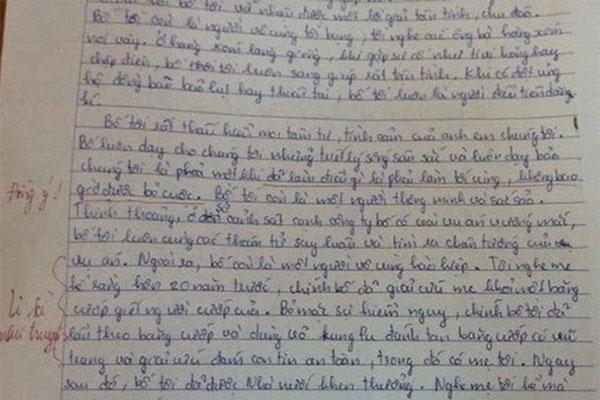 bố tôi và nhận được một lời giải tận tình, chu đáo.
Bố tôi còn là người vô cùng tốt bụng, tôi nghe các ông bà hàng xóm
nói vậy. Ở hàng xóm láng giềng, khi gặp sự cố như trôi hỏng hay
chập điện, bố tôi luôn sang giúp rất tận tình. Khi có đợt ủng
hộ đồng bào bão lụt hay thiên tai, bố tôi luôn là người đầu tiên đăng
kí.
Bố tôi rất thấu hiểu mọi tâm tư, tình cảm của anh em chúng tôi.
Bố luôn dạy cho chúng tôi những triết lý sống sâu sắc và luôn dạy bảo
chúng tôi là phải một khi đã làm điều gì là phải làm tới cùng, không bao
Đồng ý!
giờ được bỏ cuộc. Bố tôi còn là một người thông minh và sắc sảo.
Thỉnh thoảng, ở sở cảnh sát cạnh công ty bố có vài vụ án vướng mắc,
bố tôi luôn cùng các thám tử suy luận và tìm ra chân tướng của
vụ án. Ngoài ra, bố còn là một người vô cùng hào hiệp. Tôi nghe mẹ
kể rằng hơn 20 năm trước, chính bố đã giải cứu mẹ khỏi một băng
Li kì
cướp giết người cướp của. Bỏ mặc sự hiểm nguy, chính bố tôi đã
như truyện
lần theo băng cướp và dùng võ kungfu đánh tan băng cướp có vũ
trang và giải cứu đám con tin an toàn, trong đó có mẹ tôi. Ngay
sau đó, bố tôi đã được Nhà nước khen thưởng. Nghe mẹ tôi kể mà